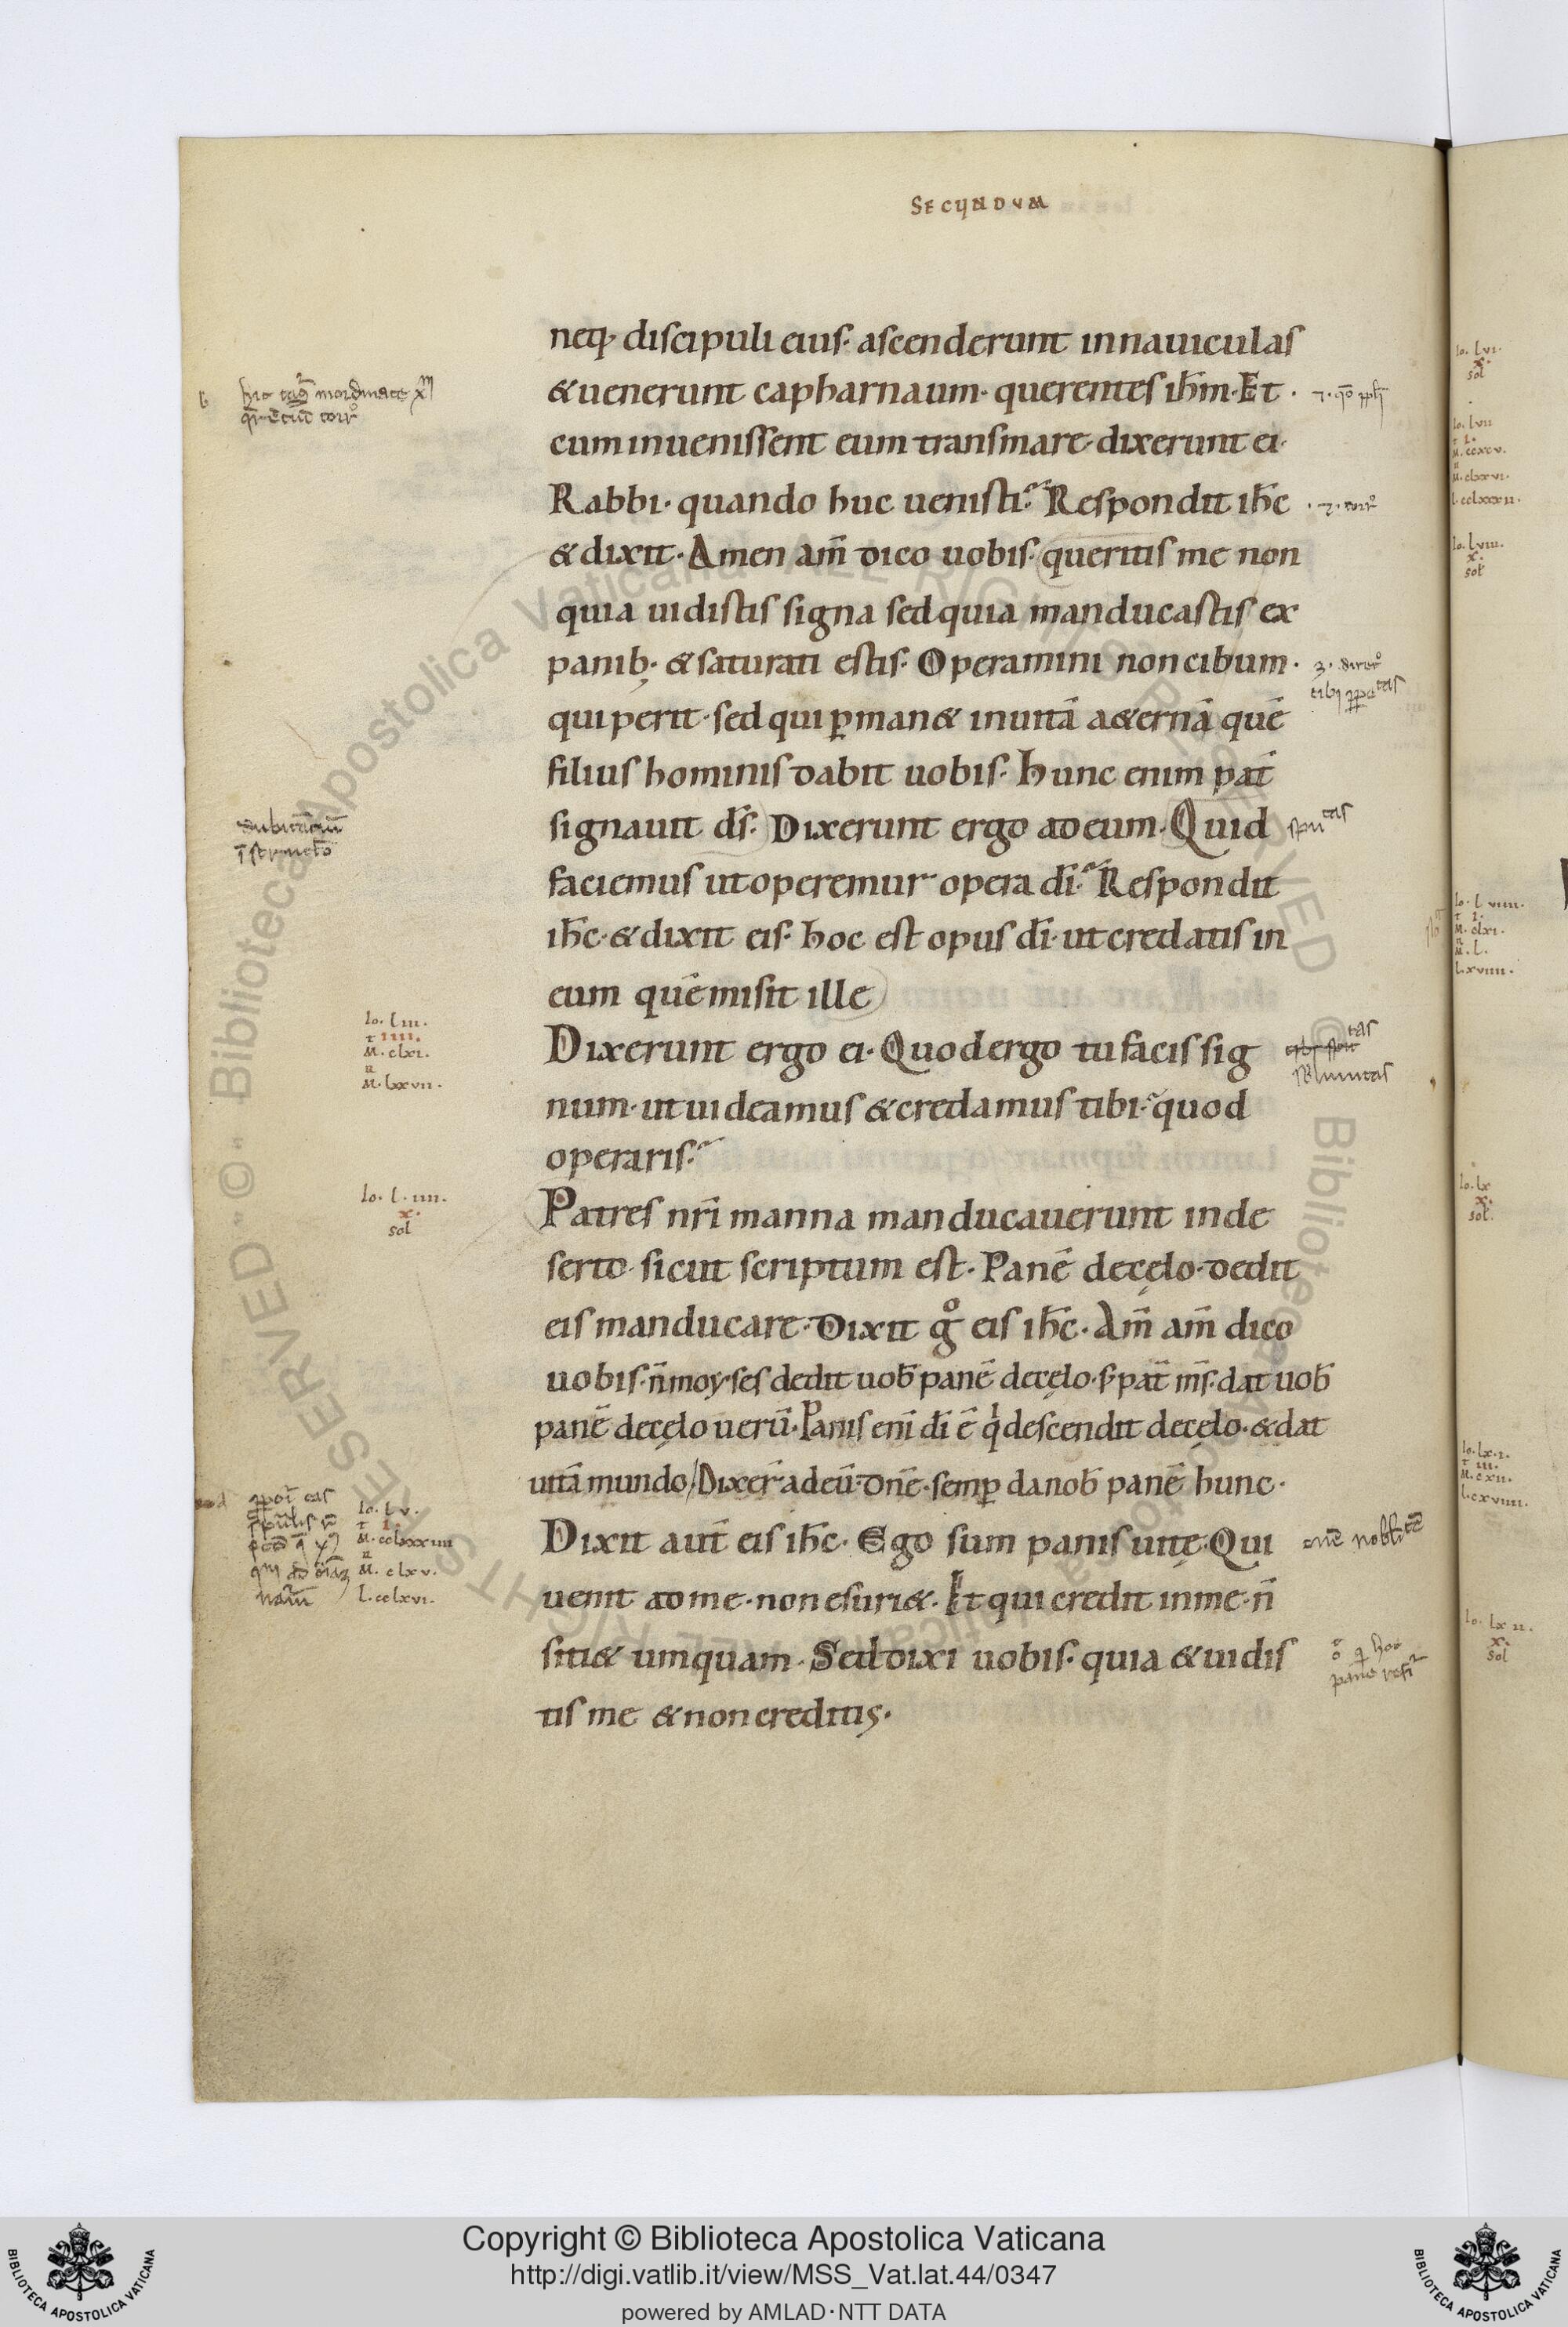 SECUNDUM
neq; discipuli eius· ascenderunt in nauiculas
& uenerunt capharnaum· querentes ihm̄· Et
cum inuenissent eum trans mare· dixerunt ei·
Rabbi· quando huc uenisti? Respondit ihc̄
& dixit· Amen am̄ dico uobis· queritis me non
quia uidistis signa sed quia manducastis ex
panib; & saturati estis· Operamini non cibum·
qui perit· sed qui ꝑman& in uitā a&ernā quē
filius hominis dabit uobis· Hunc enim pat̄
signauit ds̄· Dixerunt ergo ad eum· Quid
faciemus ut operemur opera dī? Respondit
ihc̄· & dixit eis· hoc est opus dī· ut credatis in
eum quē misit ille
Io. l III.
t IIII.
M. clxi.
R
M. lxvii.
Dixerunt ergo ei· Quod ergo tu facis sig
num· ut uideamus & credamus tibi? quod
operaris?
Io. l. IIII.
x.
sol
Patres nr̄i manna manducauerunt in de
serto· sicut scriptum est· Panē de cęlo· dedit
eis manducare· Dixit gͦ eis ihc̄· Am̄ am̄ dico
uobis· n̄ moyses dedit uob̄ panē de cęlo· s; pat̄ ms̄· dat uob̄
panē de cęlo uerū· Panis eni dī ē q̍ descendit de cęlo· & dat
uitā mundo/ Dixer̄ ad eū· dnē· semꝑ da nob̄ panē hunc·
Io. l v.
t I.
M. cclxxxiiii
M. clxv.
L. cclxvi.
Dixit aut̄ eis ihc̄· Ego sum panis uitę· Qui
uenit ad me· non esuri&· Et qui credit in me· n̄
siti& umquam· Sed dixi uobis· quia & uidis
tis me & non creditis·
Io. lvi.
x.
sol
Io. lvii
t I.
M. ccxcv.
M. clxxvi.
L. cclxxxii.
Io. lviii.
x.
sol
Io. l viiii.
t I.
M. clxi.
M. l.
L. xviiii.
Io. lx
x.
sol.
Io. lx.i.
t III.
M. cxii.
L. cxviiii.
Io. lx ii.
x.
sol
Biblioteca Apostolica Vaticana ALL RIGHTS RESERVED ©
Copyright © Biblioteca Apostolica Vaticana
http://digi.vatlib.it/view/MSS_Vat.lat.44/0347
powered by AMLAD·NTT DATA
BIBLIOTECA APOSTOLICA VATICANA
BIBLIOTECA APOSTOLICA VATICANA